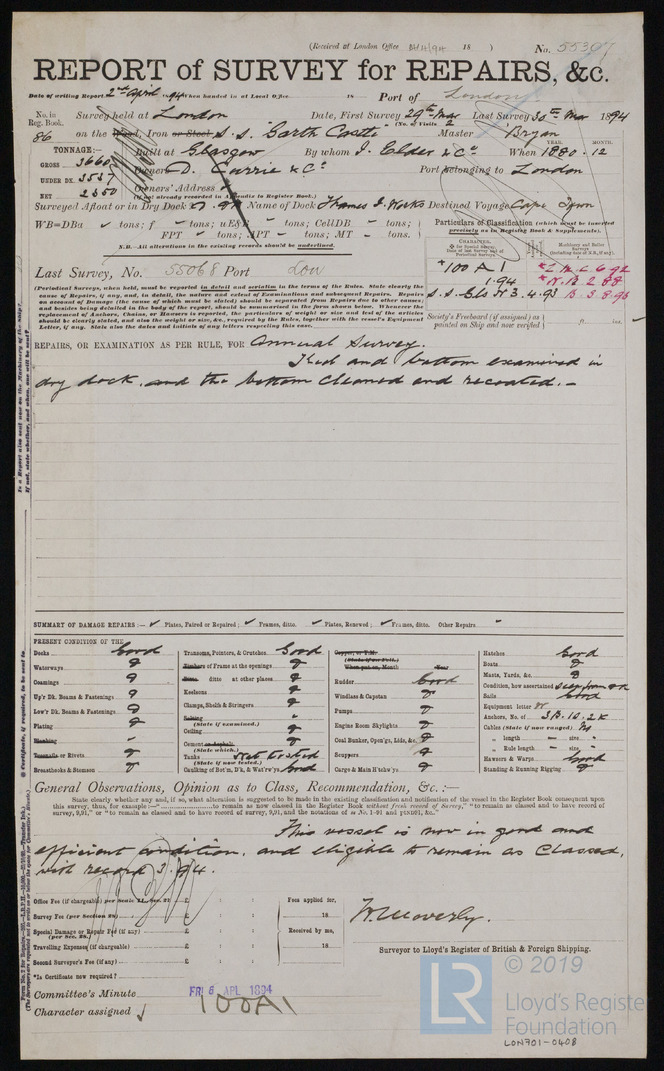 (Received at London Office 18 )
No. 55307
REPORT of SURVEY for REPAIRS, &c.
Date of writing Report 2nd April 94 When handed in at Local Office 18 Port of London
No. in Reg. Book. Survey held at London Date, First Survey 29th Mar Last Survey 30th Mar 1894
86 on the Wood, Iron or Steel S.S. "Garth Castle" (No. of Visits 2 ) Master Bryan
TONNAGE:— Built at Glasgow By whom J. Elder & Co When 1880 . 12 YEAR. MONTH.
GROSS 3660 Owners D. Currie & Co Port belonging to London
UNDER DK. 3537 Owners' Address
(if not already recorded in Appendix to Register Book.)
NET 2350
Surveyed Afloat or in Dry Dock Name of Dock Thames I. Works Destined Voyage Cape Town
WB=DBa tons; f tons; uE&B tons; CellDB tons;
FPT tons; APT tons; MT tons.
N.B.—All alterations in the existing records should be underlined.
Particulars of Classification (which must be inserted precisely as in Register Book & Supplements).
Last Survey, No. 55068 Port Lon
(Periodical Surveys, when held, must be reported in detail and seriatim in the terms of the Rules. State clearly the
cause of Repairs, if any, and, in detail, the nature and extent of Examinations and subsequent Repairs. Repairs
on account of Damage (the cause of which must be stated) should be separated from Repairs due to other causes;
and besides being detailed in the body of the report, should be summarised in the form shown below. Whenever the
replacement of Anchors, Chains, or Hawsers is reported, the particulars of weight or size and test of the articles
should be clearly stated, and also the weight or size, &c., required by the Rules, together with the vessel's Equipment
Letter, if any. State also the dates and initials of any letters respecting this case.
*100 A 1 *L.M.C. 6 92
1.94 *N.B. 2 88
S.S. Lls No 3. 4.93 B.S. 8.93
Society's Freeboard (if assigned) as painted on Ship and now verified
REPAIRS, OR EXAMINATION AS PER RULE, FOR Annual Survey.
Keel and bottom examined in
dry dock, and the bottom cleaned and recoated.—
SUMMARY OF DAMAGE REPAIRS:— Plates, Faired or Repaired; Frames, ditto. Plates, Renewed; Frames, ditto. Other Repairs
PRESENT CONDITION OF THE
Decks Good
Waterways
Coamings
Up'r Dk. Beams & Fastenings
Low'r Dk. Beams & Fastenings
Plating
Planking
Treenails or Rivets
Breasthooks & Stemson
Transoms, Pointers, & Crutches Good
Timbers of Frame at the openings
ditto at other places
Keelsons
Clamps, Shelfs & Stringers
Salting
(State if examined.)
Ceiling
Cement or Asphalt
(State which.)
Tanks Not tested
(State if now tested.)
Caulking of Bot'm, D'k, & Wat'rw'ys Good
Copper, or Y.M.
(State if on Felt.)
When put on, Month Year
Rudder Good
Windlass & Capstan
Pumps
Engine Room Skylights
Coal Bunker, Open'gs, Lids, &c.
Scuppers
Cargo & Main H'tchw'ys
Hatches Good
Boats
Masts, Yards, &c.
Condition, how ascertained seen from dk
Sails Good
Equipment letter W
Anchors, No. of 3B. 1S. 2K
Cables (State if now ranged) No
" length size
" Rule length size
Hawsers & Warps Good
Standing & Running Rigging
General Observations, Opinion as to Class, Recommendation, &c.:—
State clearly whether any and, if so, what alteration is suggested to be made in the existing classification and notification of the vessel in the Register Book consequent upon
this survey, thus, for example:—" to remain as now classed in the Register Book without fresh record of Survey," "to remain classed and to have record of
survey, 9,91," or "to remain classed and to have record of survey, 9,91, and the notations of
This vessel is now in good and
efficient condition, and eligible to remain as Classed,
with record 3.94.
Office Fee (if chargeable) per Scale £ : : Fees applied for,
Survey Fee (per Section 28) £ : : 18
Special Damage or Repair Fee (if any) £ : : Received by me,
(per Sec. 28.)
Travelling Expenses (if chargeable) £ : : 18
Second Surveyor's Fee (if any) £ : :
*Is Certificate now required?
W. Moverly.
Surveyor to Lloyd's Register of British & Foreign Shipping.
Committee's Minute FRI 6 APL 1894
Character assigned 100A1
LR © 2019
Lloyd's Register
Foundation
LON701-0408